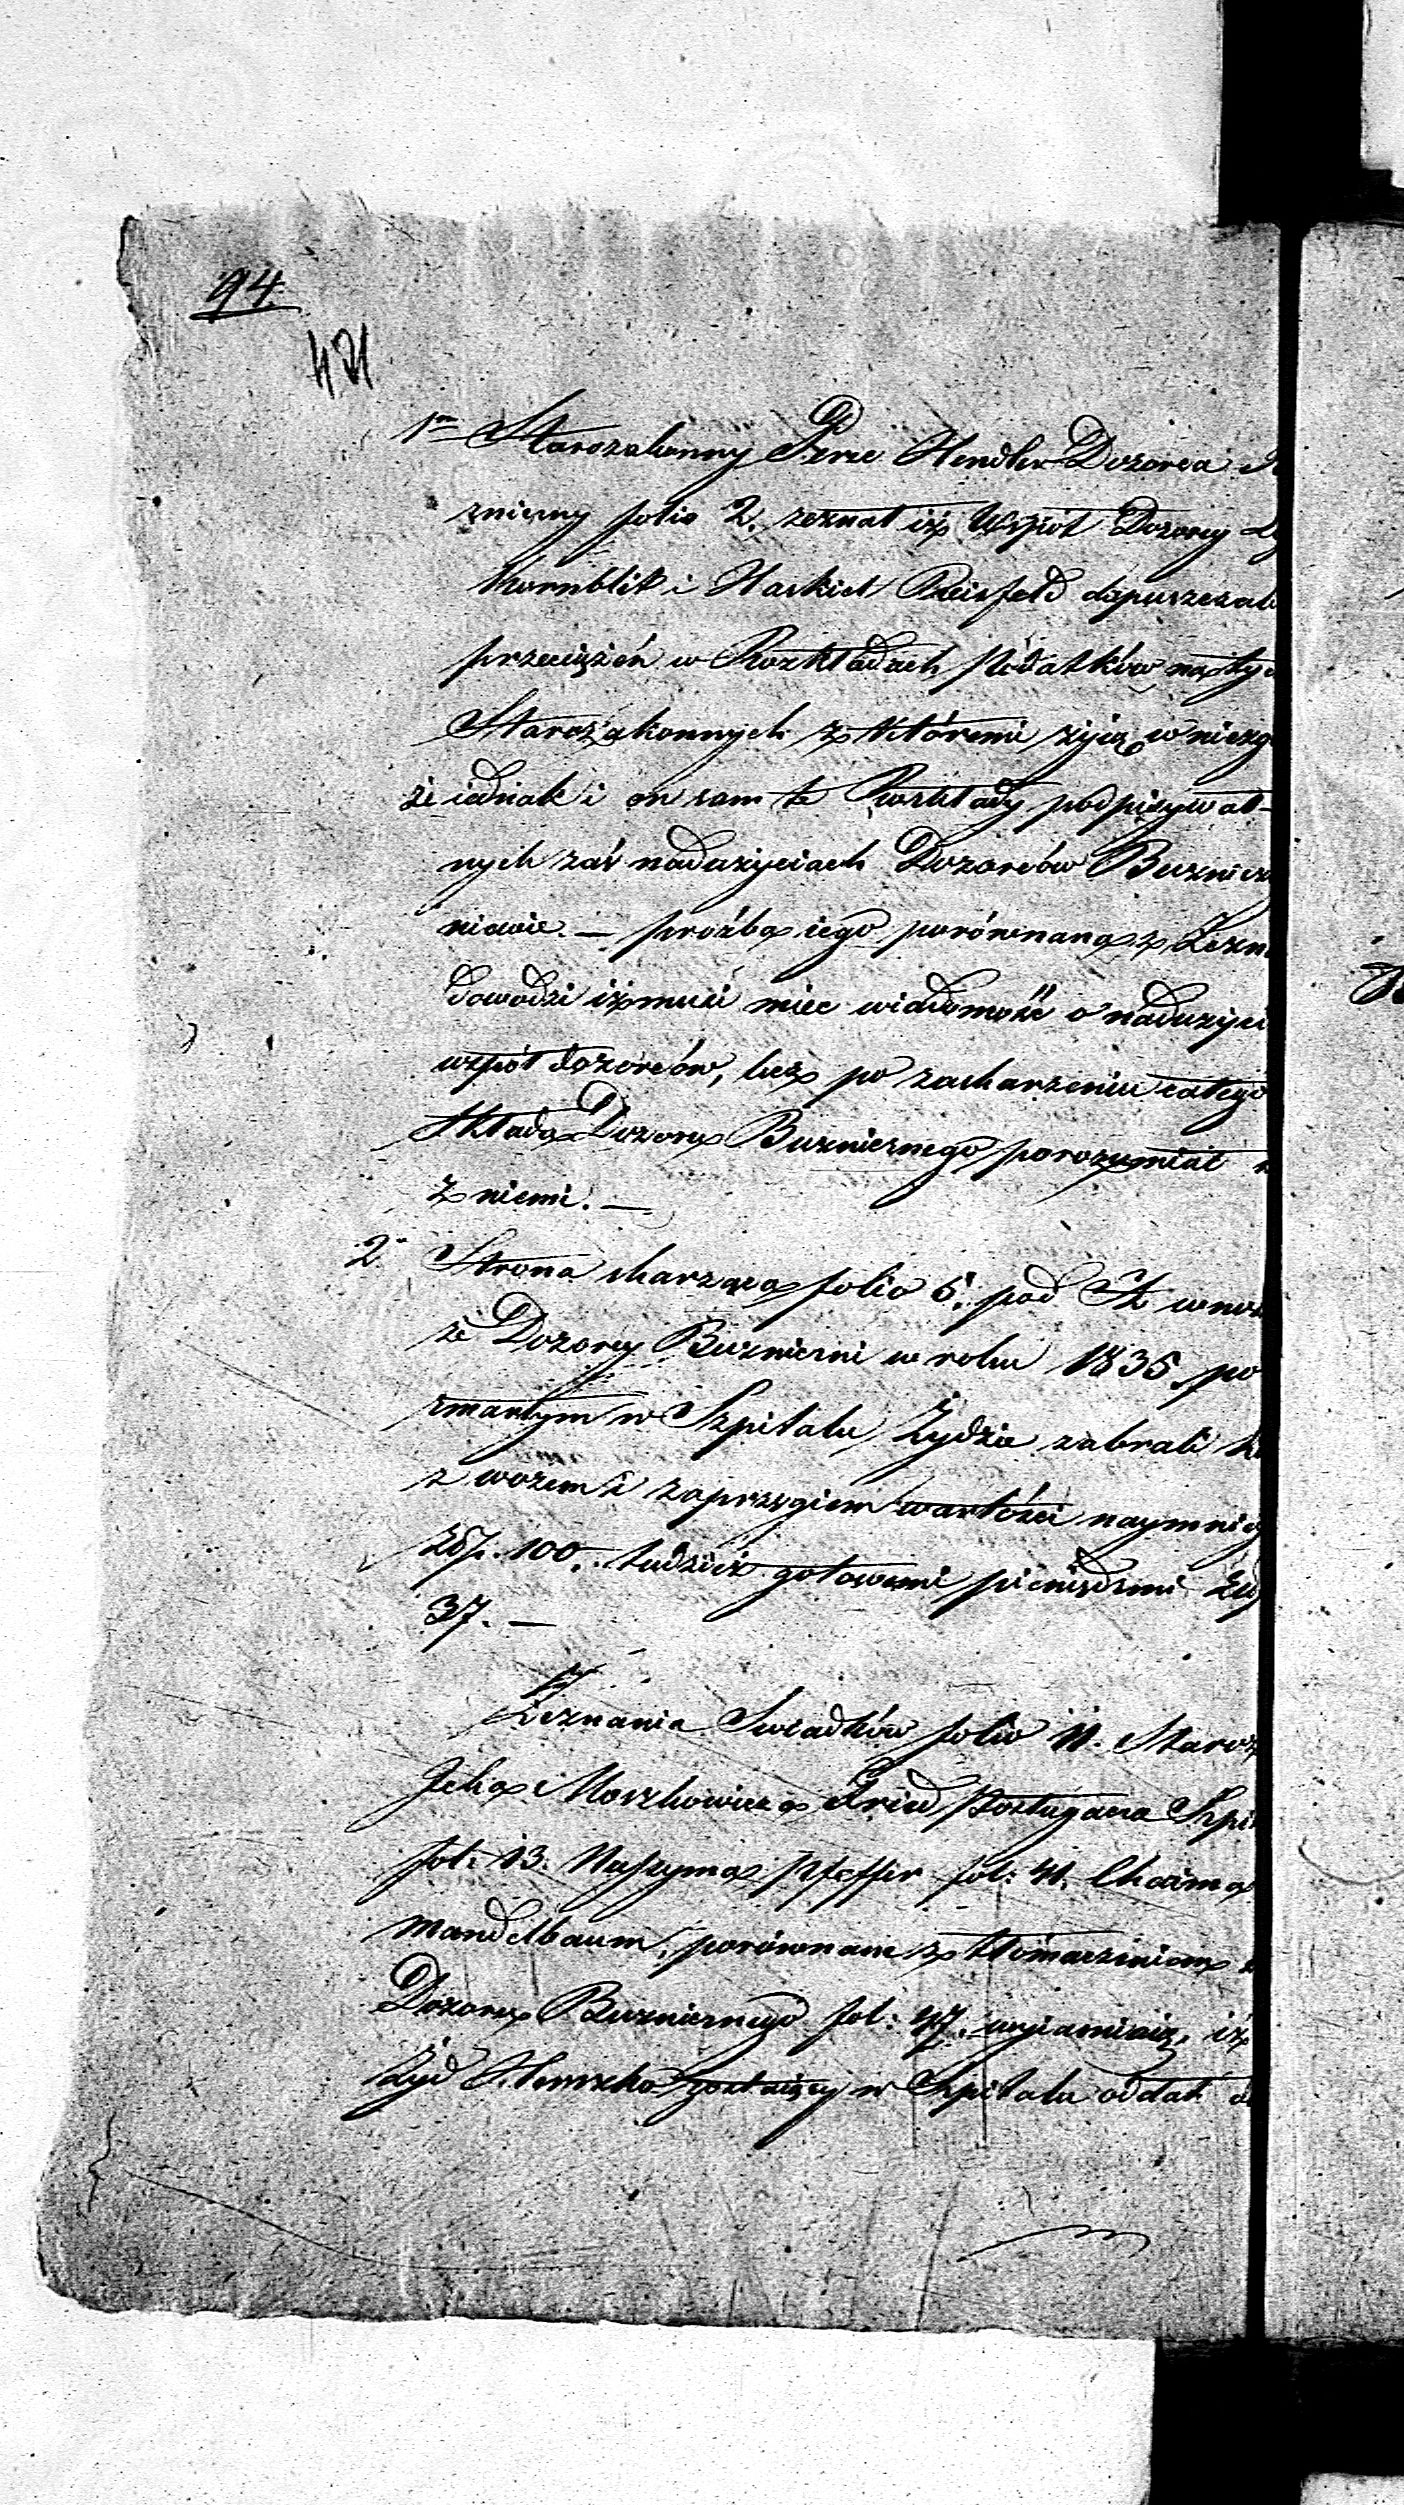 94
421
1mo Starozakonny Berc Hendler Dozorca
zniczny folio 2. zeznał iż Wspoł Dozorcy
Kornblit i Haskiel Reisfeld dopuszczali
przeciążeń w Rozkładach podatków na tych
Starozakonnych z któremi żyią w niezg
że iednak i on sam te Rozkłady podpisywał
nych zaś nadużyciach Dozorców Buznicz
niewie. — proźba iego porównana z Zezn
dowodzi iż musi miec wiadomość o nadużyci
wspoł dozorców, lecz po zaskarzeniu całego
składu Dozoru Buznicznego porozumiał
z niemi. —
2. Strona skarząca folio 5. pod wnos
że Dozorcy Buzniczni w roku 1835 po
zmarłym w Szpitalu Żydzie zabrali
z wozem i zaprzęgiem wartości naymniey
Złp. 100. tudzież gotowemi pieniędzmi Złp
37. —
Zeznania Swiadków folio 11. Staroz
Icka Moszkowicza Fried Posługacza Szpi
fol: 13. Naszyma Pfeffer fol: 41. Chaima
Mandelbaum, porównane z tłómaczeniem
Dozoru Buznicznego fol: 47. wyiaśniaią, iż
Żyd Herszko w Szpitalu oddał